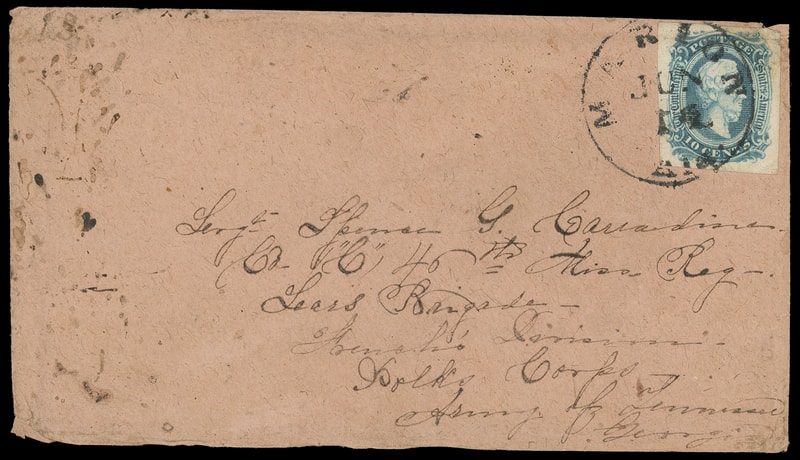 MARION
JUL
12
ALA
POSTAGE
THE CONFEDERATE States America
10 CENTS
Sergt. Spence G. Carradine.
Co "C" 46th Miss Reg-
Sears Brigade-
French's Division-
Polks Corps-
Army of Tennessee
Georgia